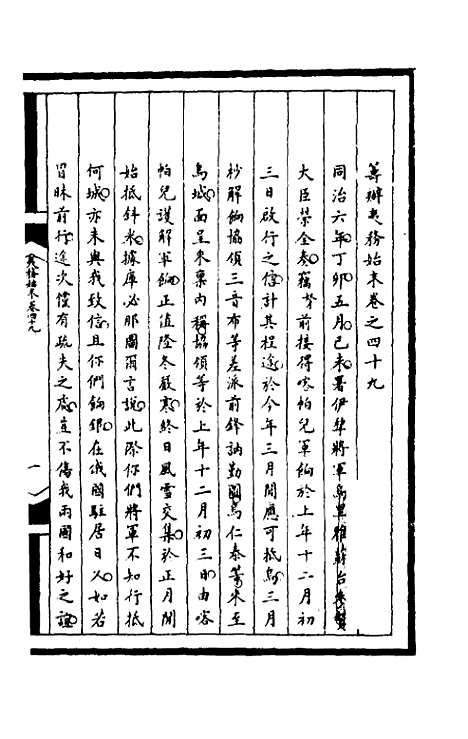 籌辦夷務始末卷之四十九
同治六年丁卯五月己未署伊犂將軍烏里雅蘇台參贊
大臣榮全奏竊努前接得喀帕兒軍餉於上年十二月初
三日啟行之信計其程途於今年三月間應可抵烏三月
杪解餉協領三音布等差派前鋒訥勤圖烏仁泰等來至
烏城面呈來稟內稱協領等於上年十二月初三日由喀
帕兒護解軍餉正值隆冬嚴寒終日風雪交集於正月間
始抵斜米據庫必那圖爾言說此際你們將軍不知行抵
何城亦未與我致信且你們餉銀在俄國駐居日久如若
冒昧前行途次償有疏失之處豈不傷我兩國和好之誼
夷務始末卷四十九
一